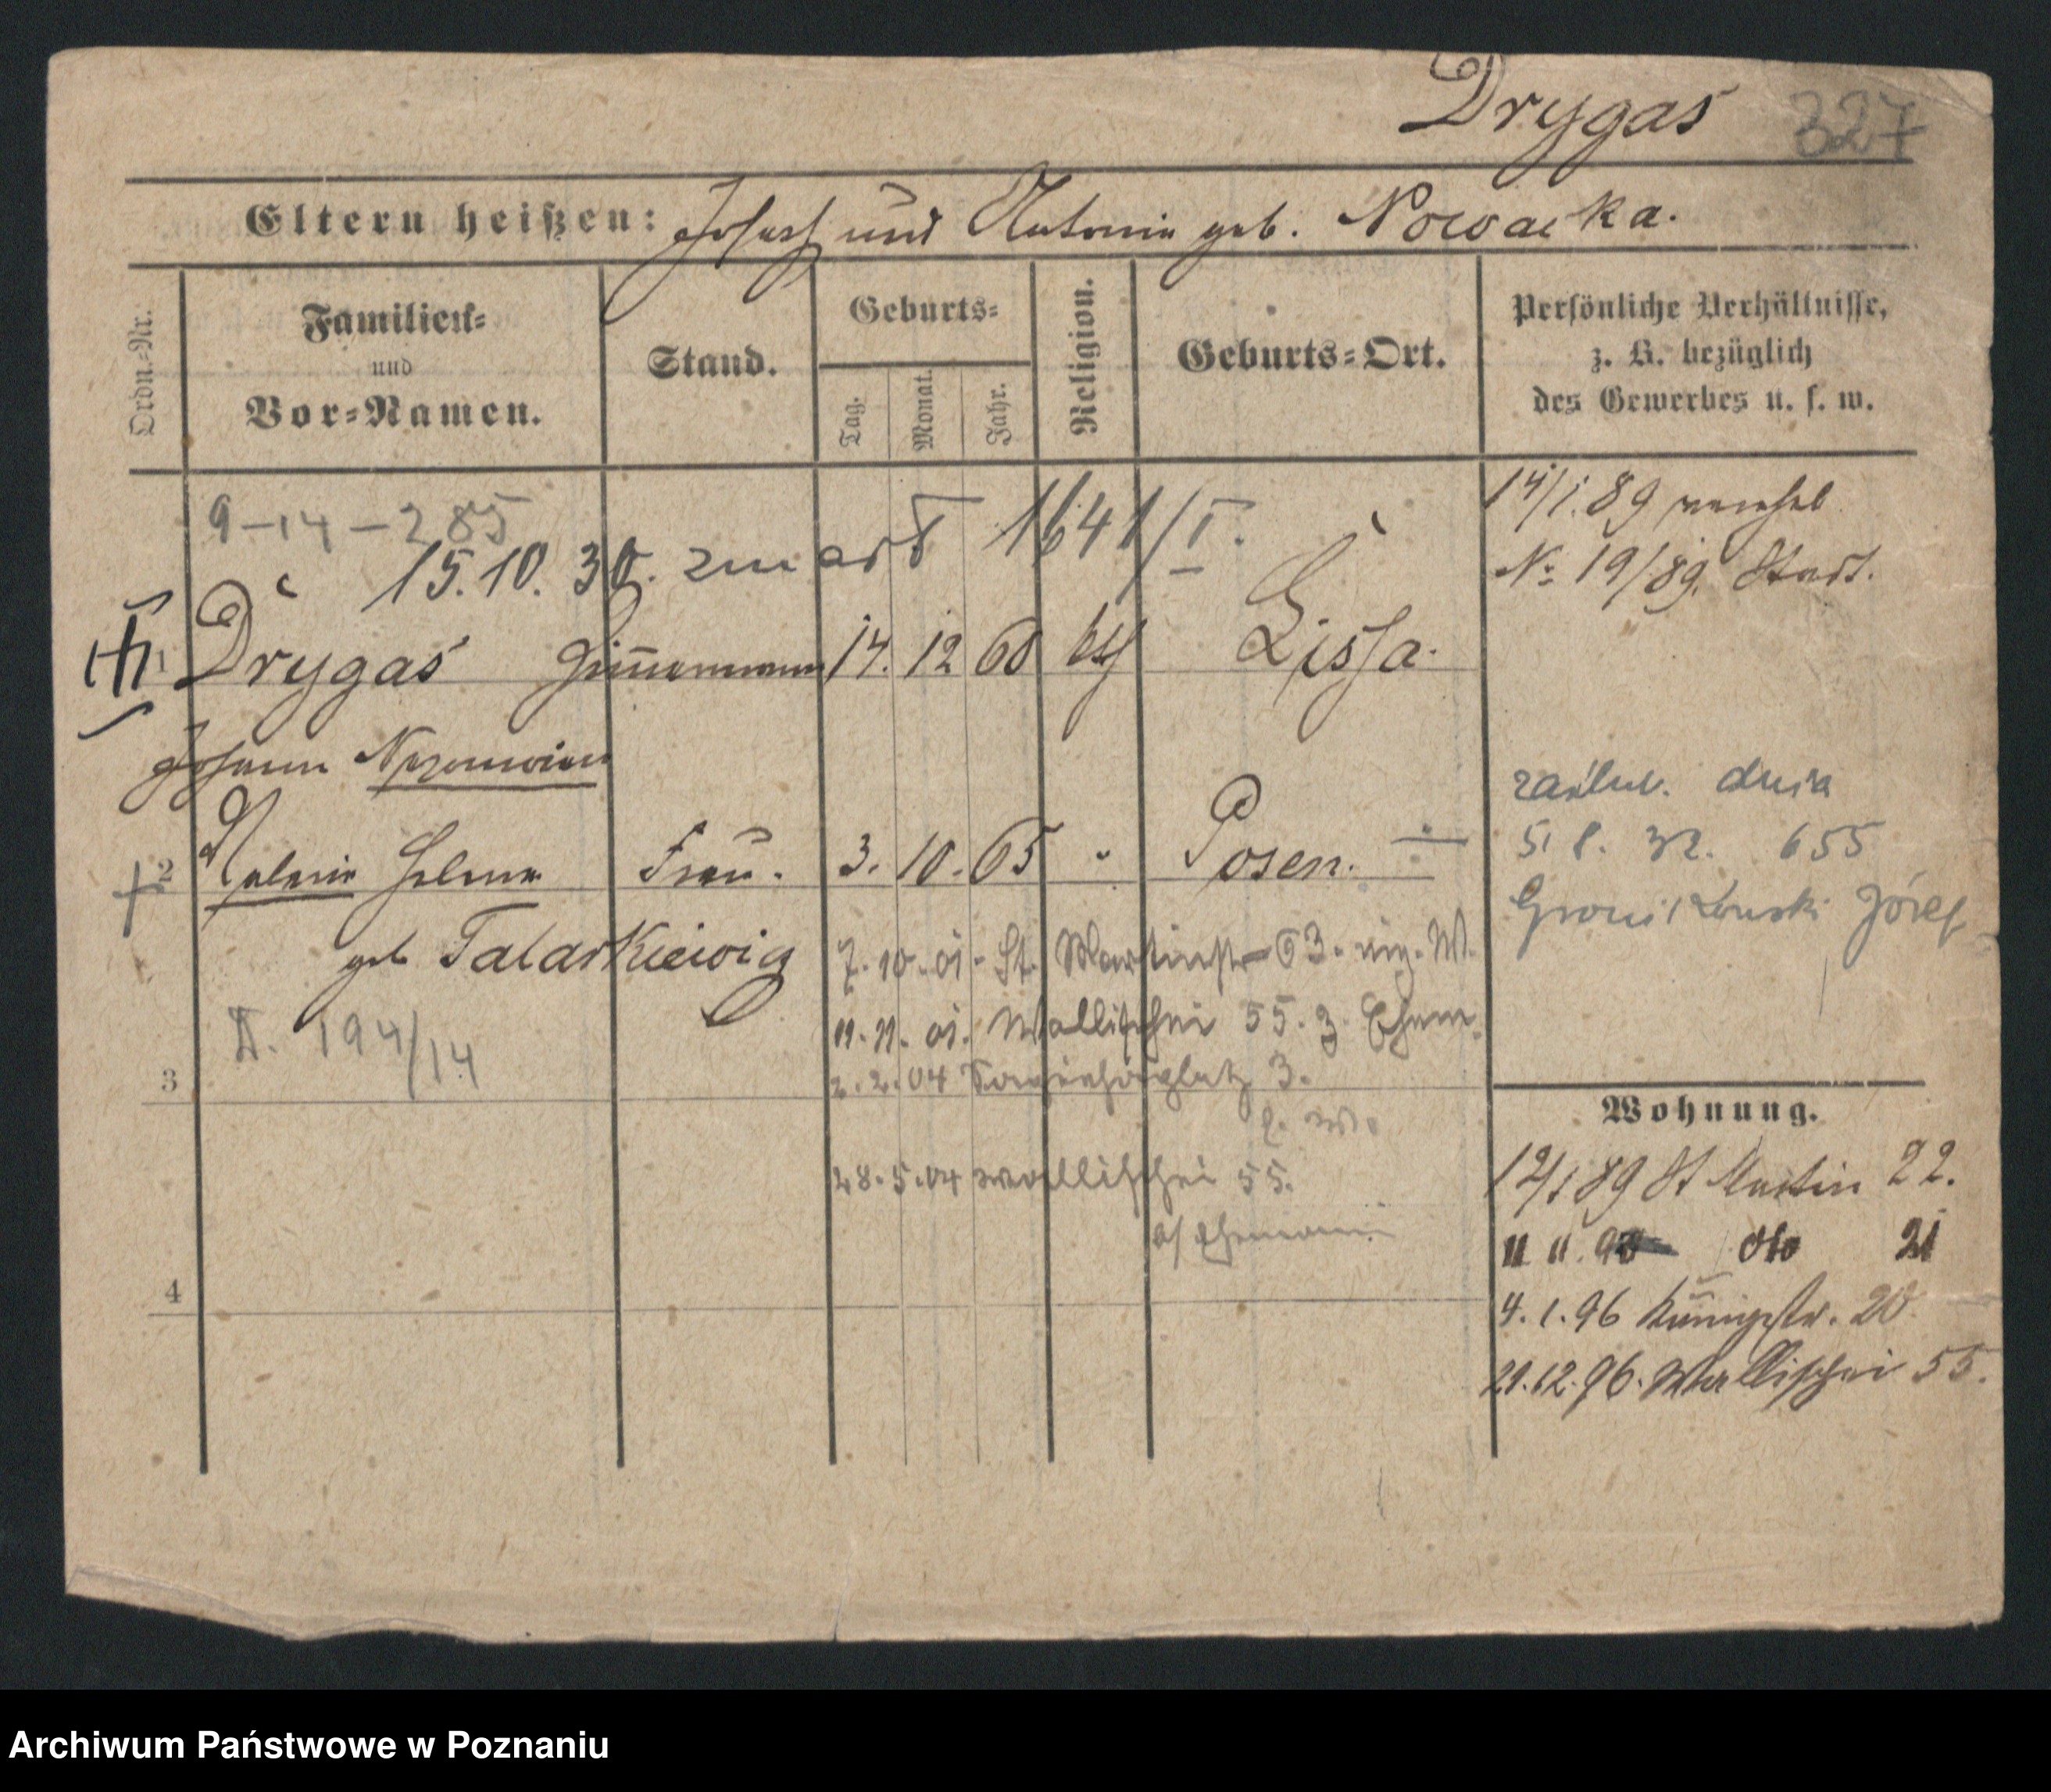 Drygas 327
Eltern heißen: Joseph und Antonie geb. Nowacka.
Ordn.-Nr.
Familien-
und
Vor-Namen.
Stand.
Geburts-
Tag.
Monat.
Jahr.
Religion.
Geburts-Ort.
Persönliche Verhältnisse,
z. B. bezüglich
des Gewerbes u. s. w.
14/1.89
No 19/89.
9-14-285
15.10.30. zmarł 1641/I.
1 Drygas Zimmermann 14. 12 60 kth Lissa.
Johann Nepomucen
2 Valerie Helena Frau. 3. 10. 65 " Posen.
geb Talarkiewicz
zaślub. dnia
5/8. 32. 655
Józef
7.10.01. St. Martinstr 63.
11.11.01. Wallischei 55. z. Ehem.
2.2.04 3.
194/14
3
28.5.04 Wallischei 55.
a/ Ehemann
4
Wohnung.
12/1 89 St Martin 22.
dto 21
4.1.96 Königstr. 20.
21.12.96. Wallischei 55.
Archiwum Państwowe w Poznaniu